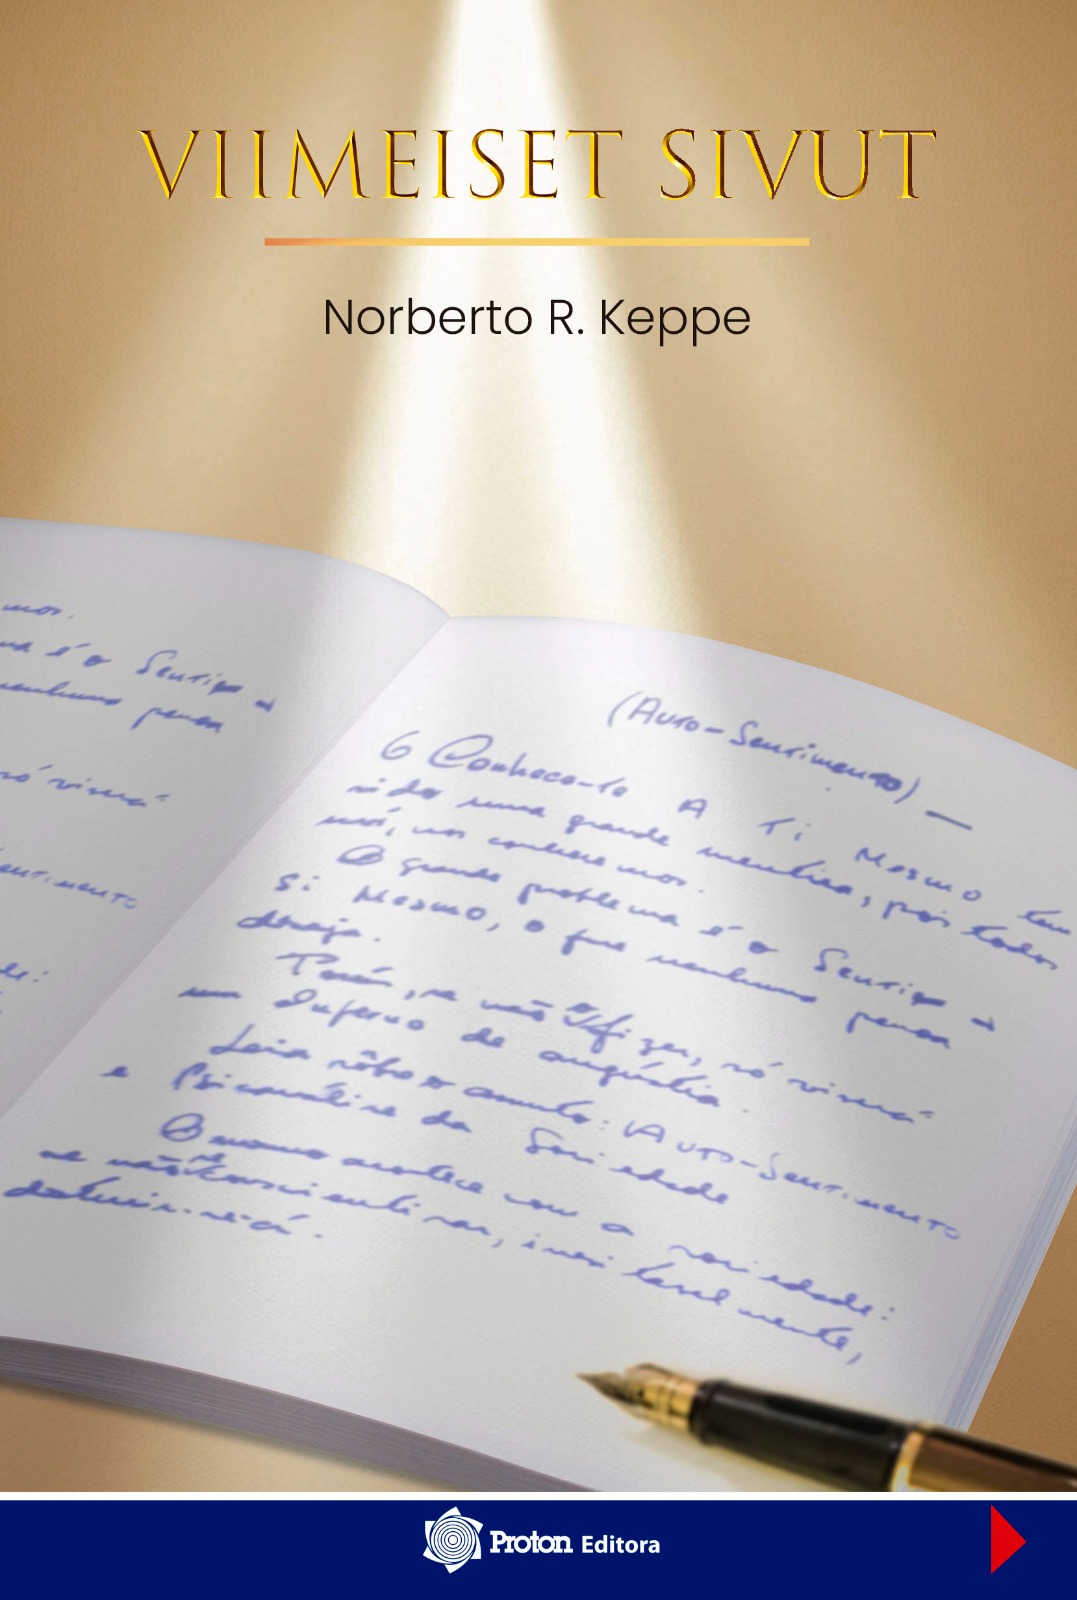 VIIMEISET SIVUT
Norberto R. Keppe
mos.
é o Sentir a
nenhum pensa
só viverá
(Auto-Sentimento) —
6 Conhece-te A Ti Mesmo tem
sido uma grande mentira, pois todos
nós, nos conhecemos.
O grande problema é o Sentir a
Si Mesmo, o que nenhum pensa
deseja.
Porém, se não o fizer, só viverá
um Inferno de angústia.
Leia sôbre o assunto: Auto-Sentimento
e Psicanálise da Sociedade
O mesmo acontece com a sociedade:
se não se conscientizar, inexoravelmente,
destruir-se-á.
Proton Editora